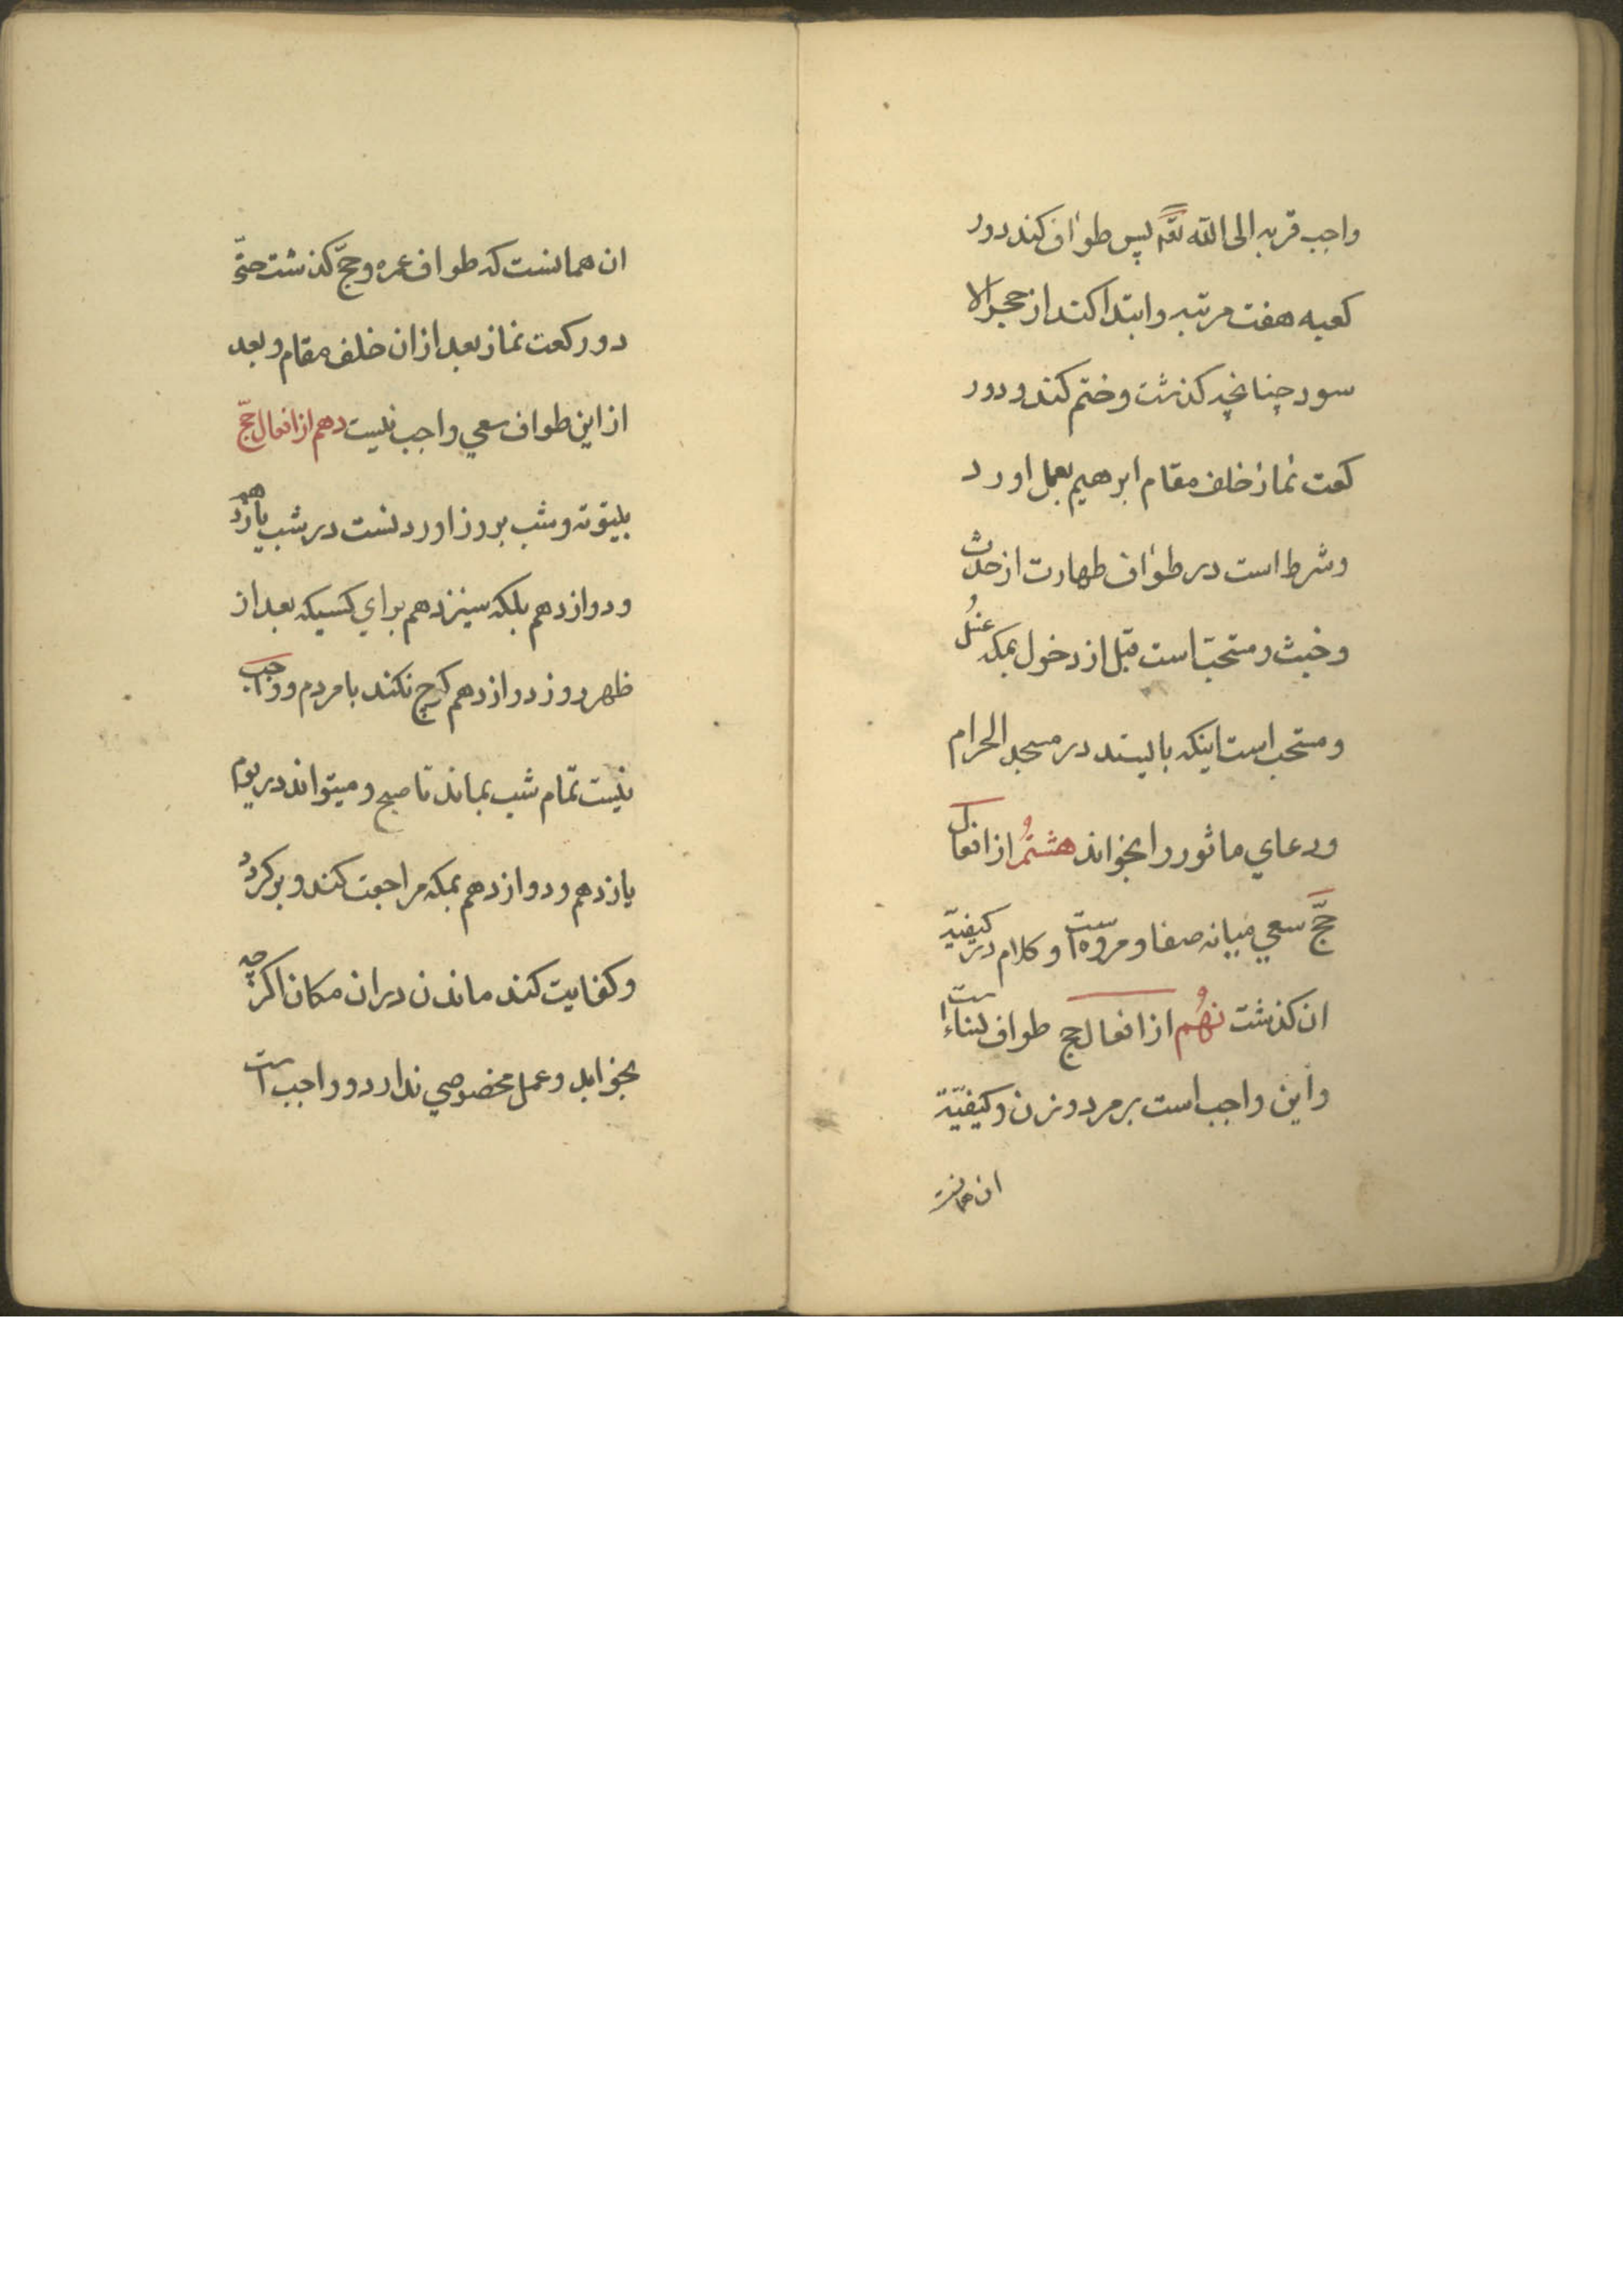 واجب قربه الی الله تعالی پس طواف کند دور
کعبه هفت مرتبه و ابتدا کند از حجر الا
سود چنانچه کذشت و ختم کند و دور
کعت نماز خلف مقام ابرهیم بعمل اورد
و شرط است در طواف طهارت از حدث
و خبث و مستحبّ است قبل از دخول بمکه غسل
و مستحب است اینکه بایستد در مسجد الحرام
و دعاي ماثور را بخواند هشتُم از افعال
حجّ سعي میانه صفا و مروه است و کلام در کیفیّة
ان کذشت نهُم از افعال حج طواف نساء است
و این واجب است بر مرد و زن و کیفیّة
ان همانست
ان همانست که طواف عمره و حجّ کذشت حتّی
دو رکعت نماز بعد از ان خلف مقام و بعد
از این طواف سعي واجب نیست دهم از افعال حجّ
بیتوته و شب بروز اوردنست در شب یازدهم
و دوازدهم بلکه سیزدهم براي کسیکه بعد از
ظهر روز دوازدهم کوچ نکند با مردم و واجب
نیست تمام شب بماند تا صبح و میتواند در یوم
یازدهم و دوازدهم بمکه مراجعت کند و برکردد
و کفایت کند ماندن در ان مکان اکرچه
بخوابد و عمل مخصوصي ندارد و واجب است